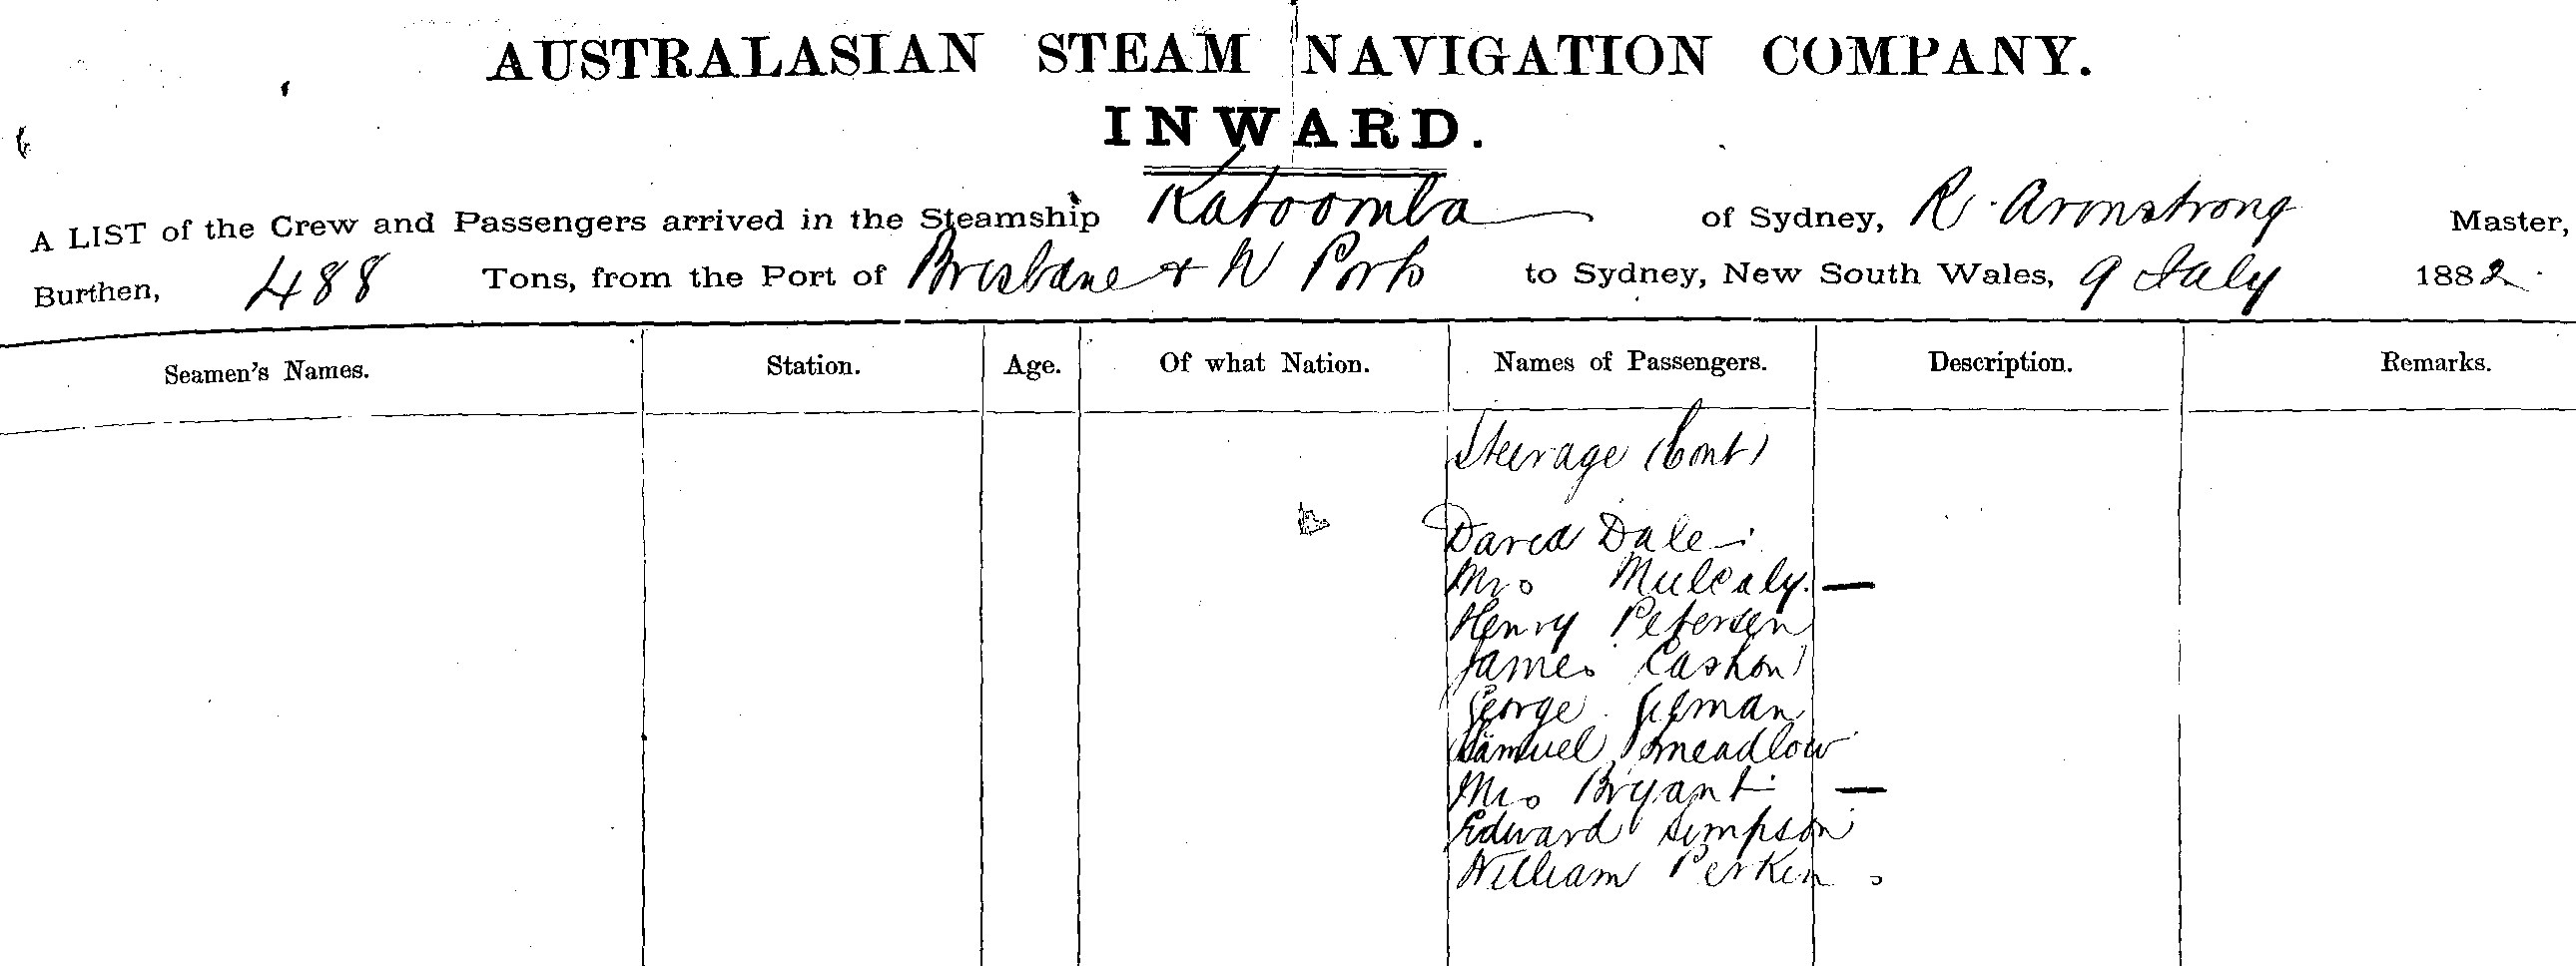 AUSTRALASIAN STEAM NAVIGATION COMPANY.
INWARD.
A LIST of the Crew and Passengers arrived in the Steamship Katoomba of Sydney, R. Armstrong Master,
Burthen, 488 Tons, from the Port of Brisbane & N Ports to Sydney, New South Wales, 9 July 1882.
Seamen's Names. Station. Age. Of what Nation. Names of Passengers. Description. Remarks.
Steerage (Cont)
David Dale
Mrs Mulcaly. —
Henry Petersen
James Cashon
George Gilman
Samuel Smeadlow
Mrs Bryant —
Edward Simpson
William Perkin